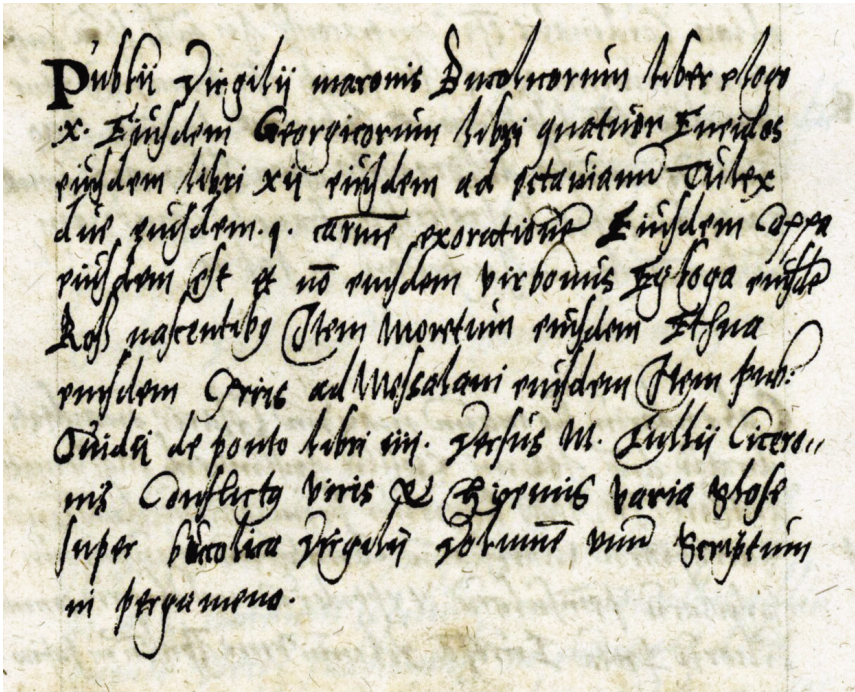 Publii Virgilii maronis Bucolicorum liber eloge
x. Eiusdem Georgicorum libri quatuor Eneidos
eiusdem libri xii eiusdem ad octavianū Culex
due eiusdem .q. carmē exoratione Eiusdem Coppa
eiusdem est et nō eiusdem vir bonus Egloga eiusdē
Rosis nascentibꝫ Item Moretum eiusdem Ethna
eiusdem Ciris ad Messalam eiusdem Item pub.
Ouidii de ponto libri iiii. Versus M. Tullii Cicero„
nis Conflictꝫ Veris & Hyemis varia glose
super bucolica Virgilii Volumē vnū scriptum
in pergameno.